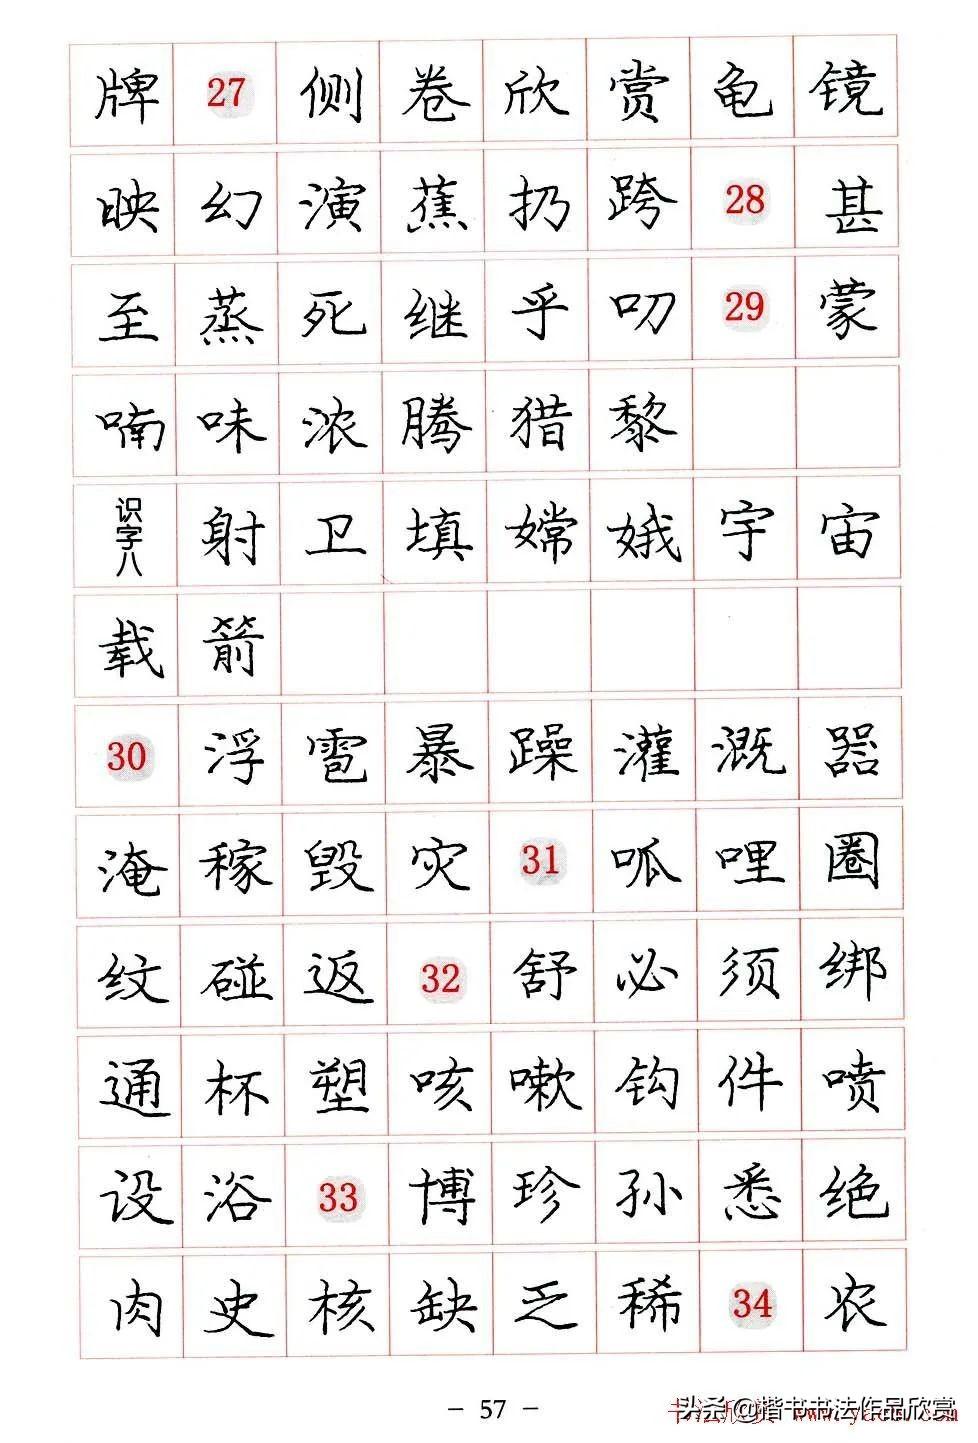 牌 27 侧 卷 欣 赏 龟 镜
映 幻 演 蕉 扔 跨 28 甚
至 蒸 死 继 乎 叨 29 蒙
喃 味 浓 腾 猎 黎
识字八 射 卫 填 嫦 娥 宇 宙
载 箭
30 浮 雹 暴 躁 灌 溉 器
淹 稼 毁 灾 31 呱 哩 圈
纹 碰 返 32 舒 必 须 绑
通 杯 塑 咳 嗽 钩 件 喷
设 浴 33 博 珍 孙 悉 绝
肉 史 核 缺 乏 稀 34 农
- 57 -
头条@楷书书法作品欣赏